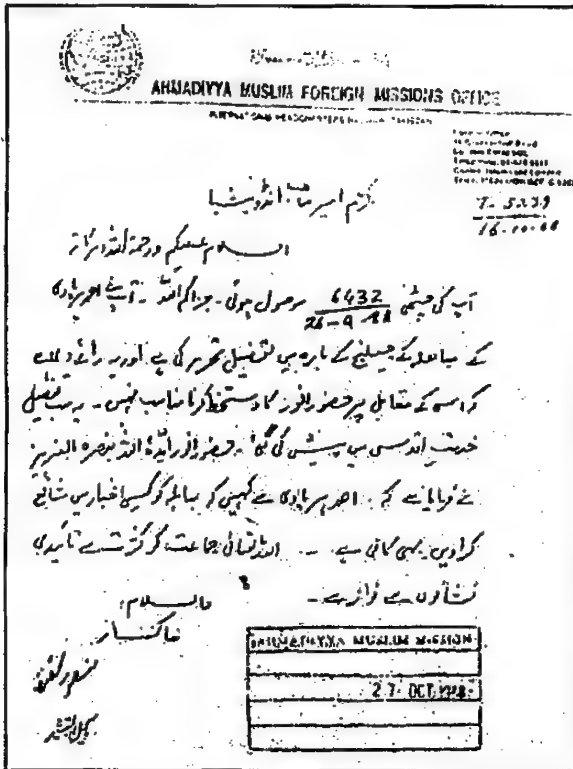 AHMADIYYA MUSLIM FOREIGN MISSIONS OFFICE
INTERNATIONAL HEADQUARTERS PAKISTAN
T- 5239
16-10-88
مکرم امیر صاحب انڈونیشیا
السلام علیکم ورحمۃ اللہ وبرکاتہ
آپ کی چٹھی 6432 / 26-9-88 موصول ہوئی۔ جزاکم اللہ۔ آپ نے احمد ہریادی
کے مباہلہ کے چیلنج کے بارہ میں تفصیل تحریر کی ہے اور یہ رائے دی ہے
کہ اس کے مقابل پر حضور انور کا دستخط کرنا مناسب نہیں۔ یہ سب تفصیل
خدمت اقدس میں پیش کی گئی۔ حضور انور ایدہ اللہ بنصرہ العزیز
نے فرمایا ہے کہ احمد ہریادی سے کہیں کہ مباہلہ کو کسی اخبار میں شائع
کرا دیں۔ یہی کافی ہے۔ اللہ تعالیٰ جماعت کو کثرت سے تائیدی
نشانوں سے نوازے۔
والسلام
خاکسار
وکیل التبشیر
AHMADIYYA MUSLIM MISSION
27 OCT 1988